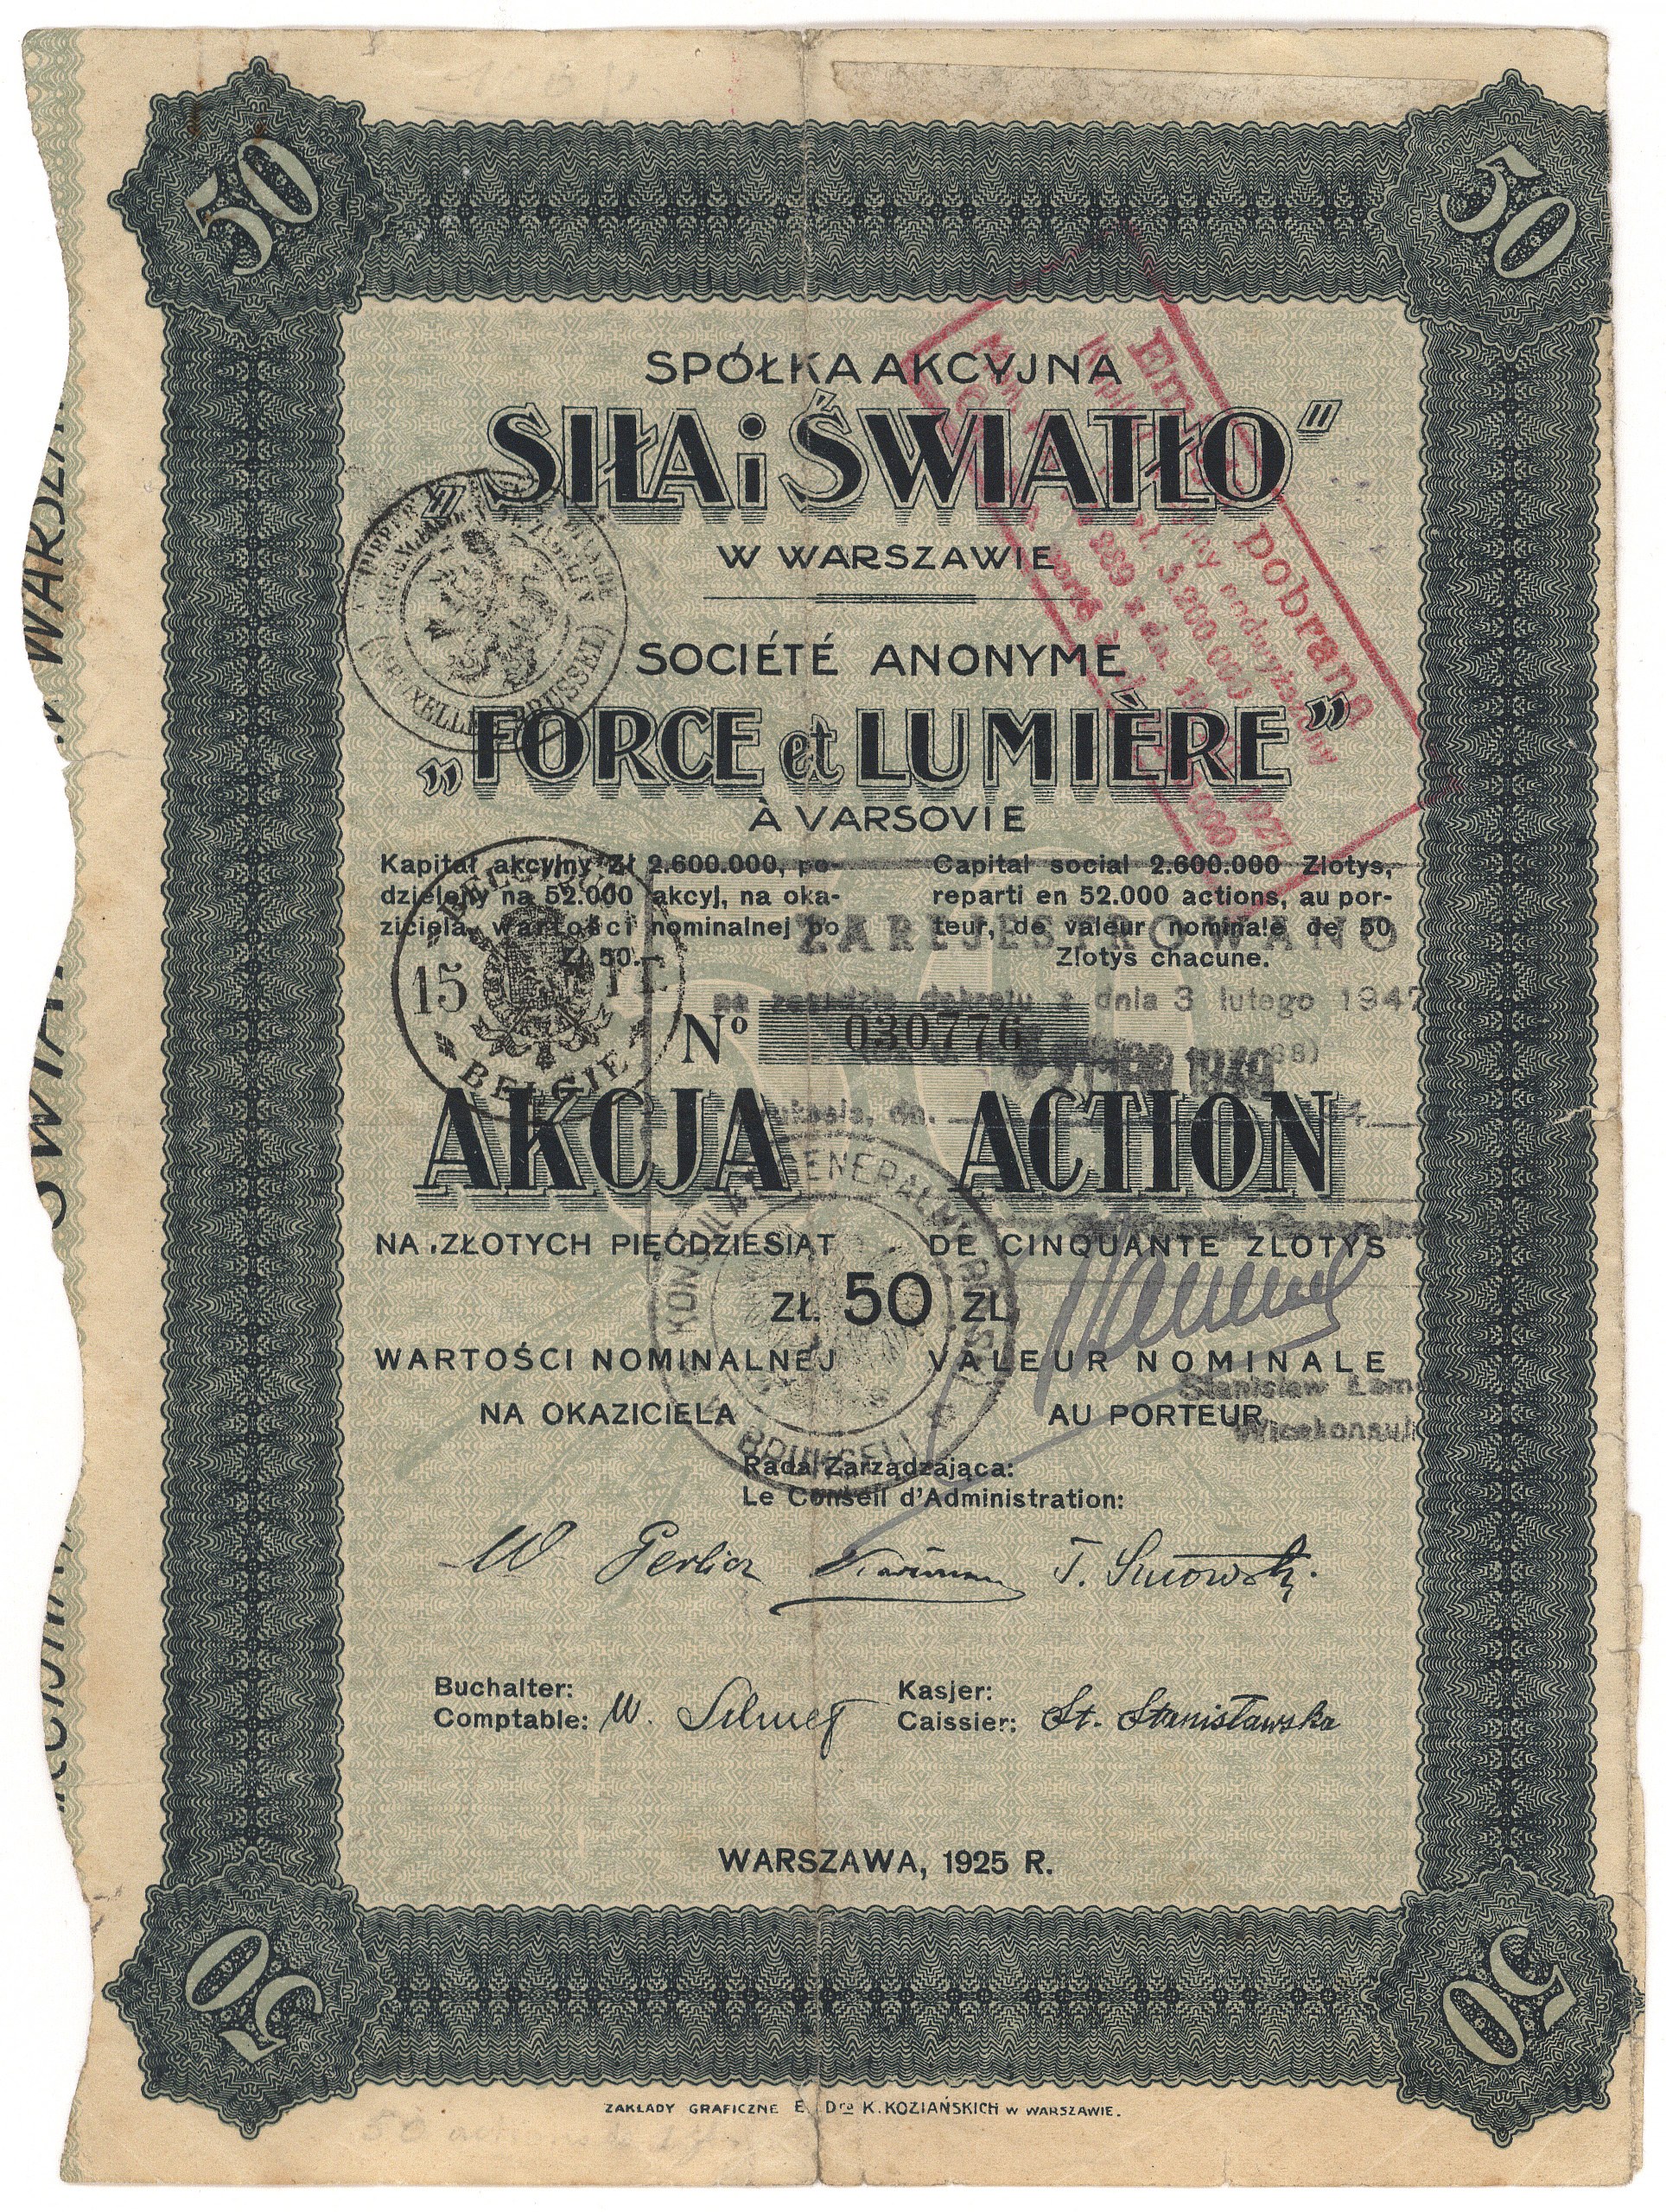 50
50
SPÓŁKA AKCYJNA
„SIŁA i ŚWIATŁO"
W WARSZAWIE
SOCIÉTÉ ANONYME
„FORCE et LUMIÈRE”
À VARSOVIE
Kapitał akcyjny Zł 2.600.000, po-
dzielony na 52.000 akcyj, na oka-
ziciela, wartości nominalnej po
Zł 50.
Capital social 2.600.000 Zlotys,
reparti en 52.000 actions, au por-
teur, de valeur nominale de 50
Zlotys chacune.
pobrana
ZAREJESTROWANO
na zasadzie dekretu z dnia 3 lutego 1947
15
BELGIE
Nº 030776
AKCJA
ACTION
NA ZŁOTYCH PIĘĆDZIESIĄT
DE CINQUANTE ZLOTYS
ZŁ. 50 ZL.
WARTOŚCI NOMINALNEJ
VALEUR NOMINALE
NA OKAZICIELA
AU PORTEUR
KONSULAT GENERALNY
Stanisław
Wicekonsul
Rada Zarządzająca:
Le Conseil d'Administration:
W Gerlicz
Buchalter:
Comptable:
Kasjer:
Caissier: St. Stanisławska
WARSZAWA, 1925 R.
50
50
ZAKŁADY GRAFICZNE E. i Dra K. KOZIAŃSKICH W WARSZAWIE.